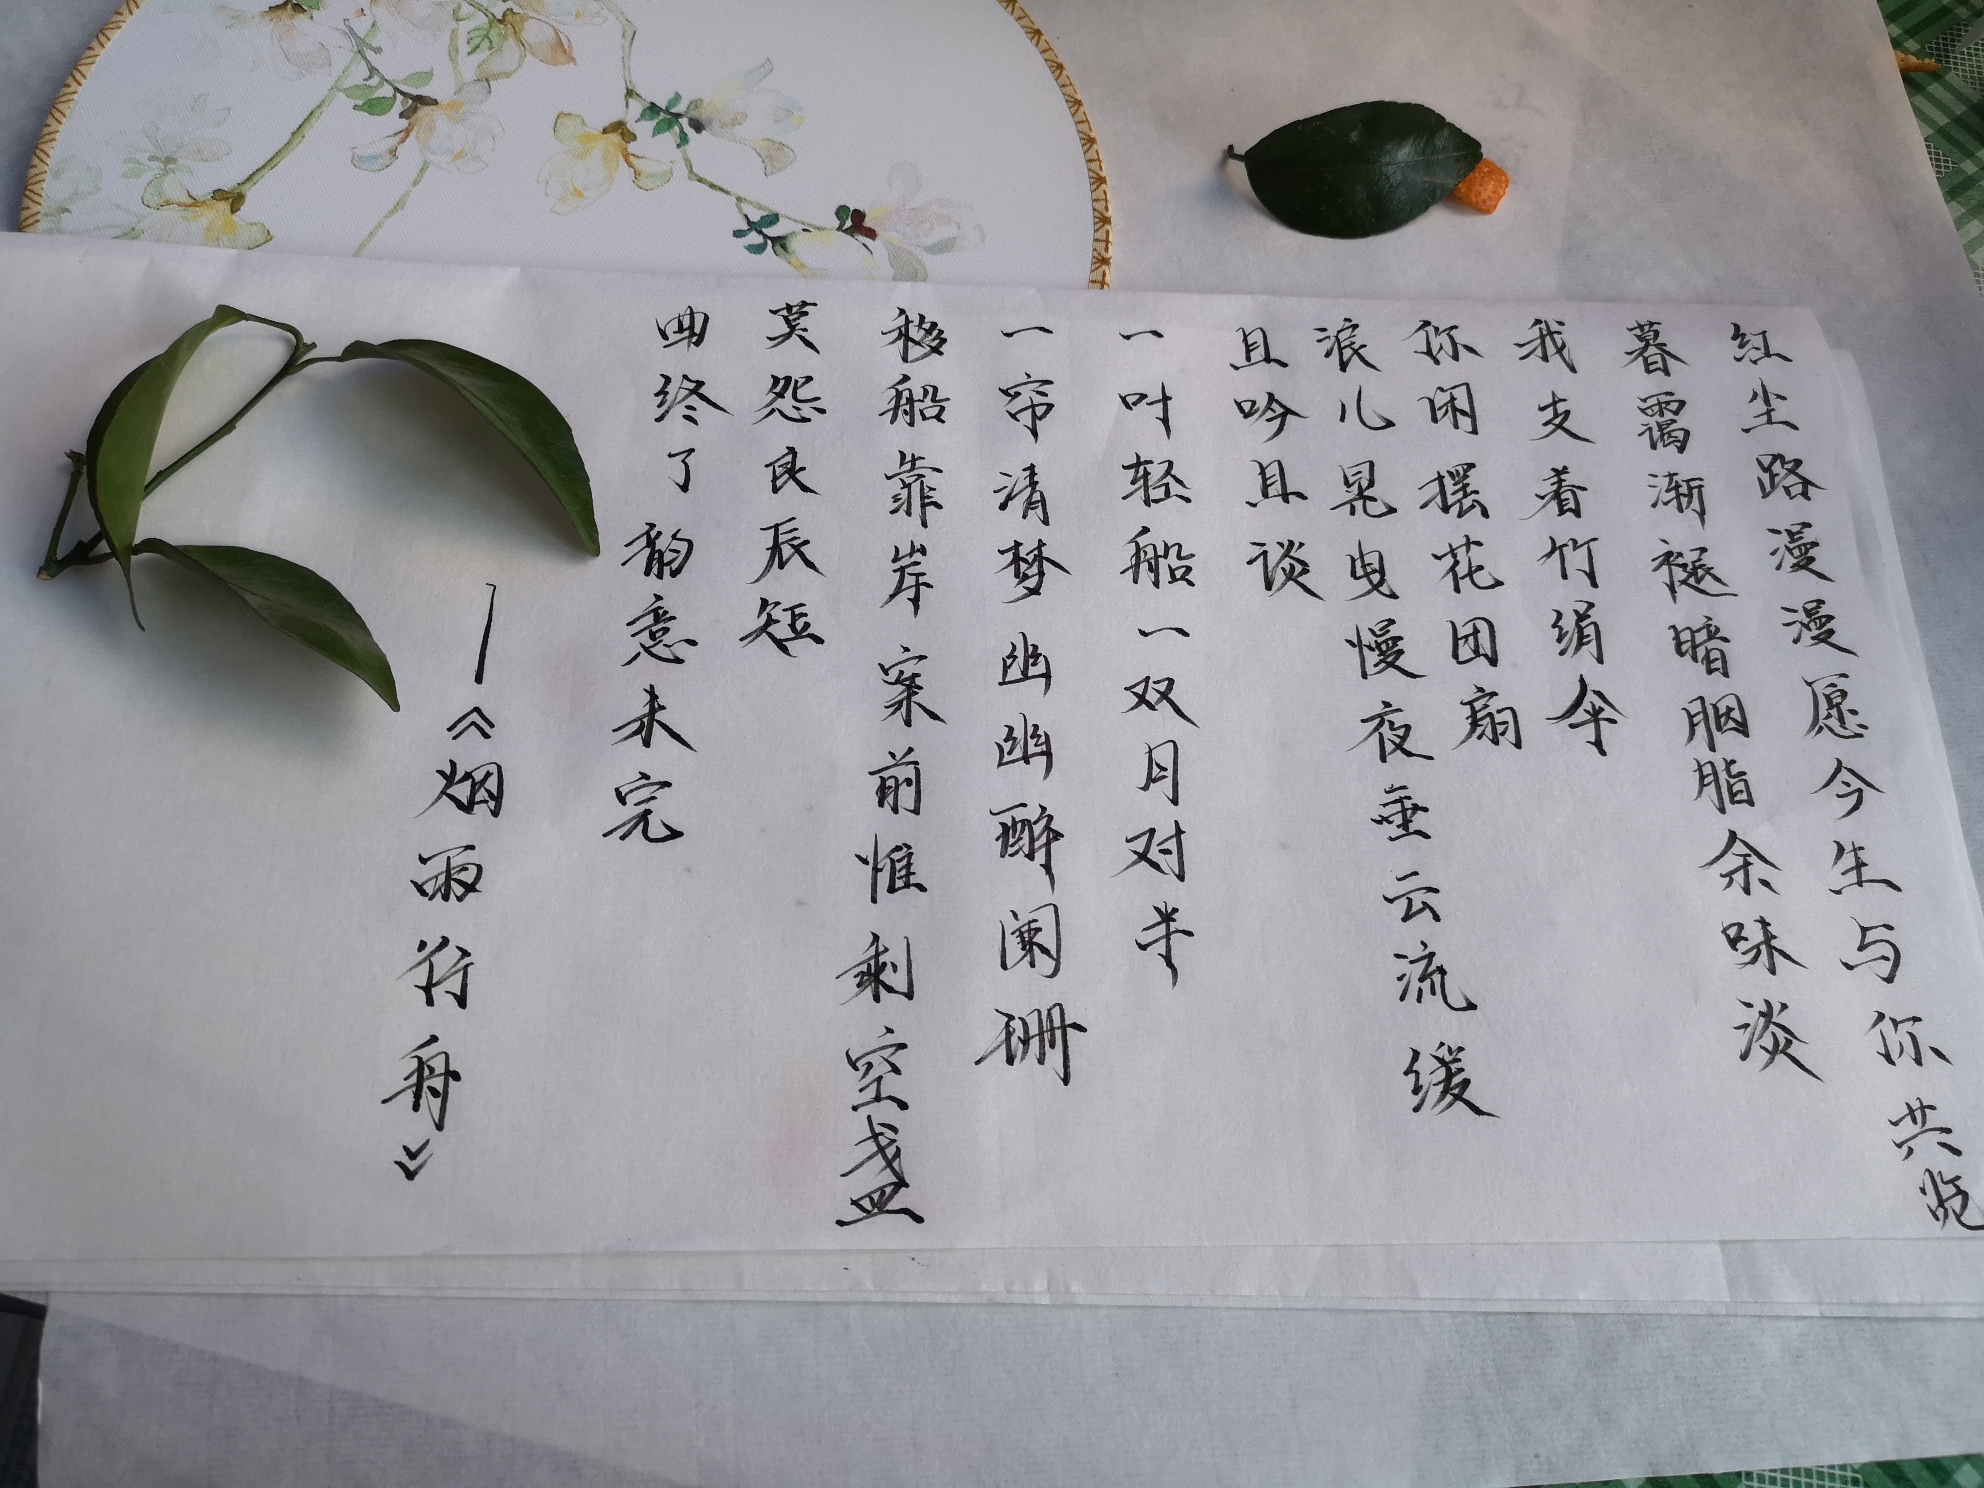 红尘路漫漫愿今生与你共览
暮霭渐褪暗胭脂余味淡
我支着竹绢伞
你闲摆花团扇
浪儿晃曳慢夜垂云流缓
且吟且谈
一叶轻船一双月对半
一帘清梦幽幽醉阑珊
移船靠岸案前惟剩空盏
莫怨良辰短
曲终了韵意未完
—《烟雨行舟》